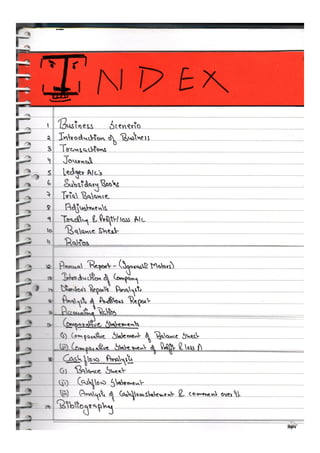 INDEX
1 Business Scenerio
2 Introduction of Business
3 Transactions
4 Journal
5 Ledger A/c's
6 Subsidary Books
7 Trial Balance
8 Adjustments
9 Trading & Profit/loss A/c
10 Balance Sheet
11 Ratios
12 Annual Report - ( Motors)
13 Introduction of Company
14 Director's Report Analysis
15 Analysis of Auditors Report
16 Accounting Policies
17 Comparative Statements
(i) Comparative Statement of Balance Sheet
(ii) Comparative Statement of Profit & loss A
18 Cash flow Analysis
(i) Balance Sheet
(ii) Cashflow Statement
(iii) Analysis of Cashflow statement & comment over it
19 Bibliography